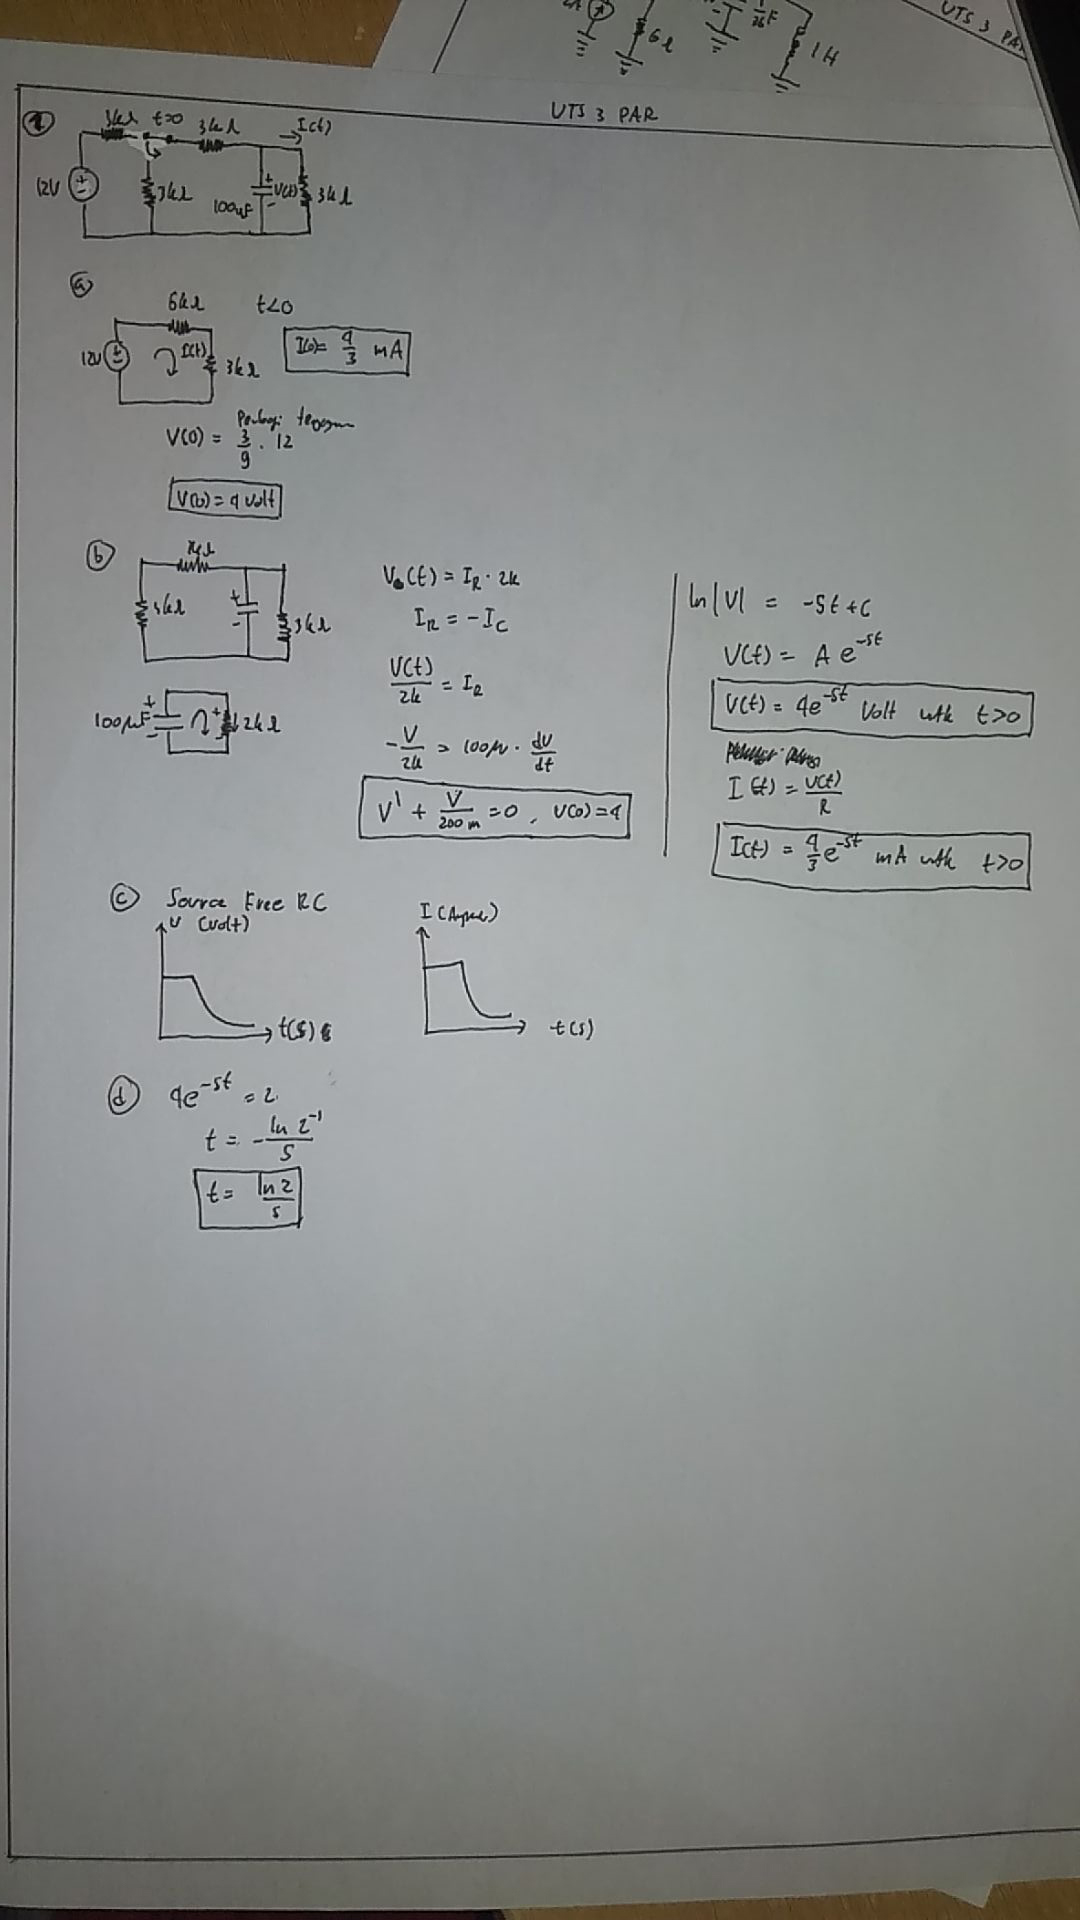 6Ω
1H
UTS 3 PA
UTS 3 PAR
1
3kΩ t=0 3kΩ I(t)
12V 3kΩ 100μF V(t) 3kΩ
a
6kΩ t<0
12V I(t) 3kΩ
I(0)= 4/3 mA
V(0) = 3/9 . 12
V(0) = 4 Volt
b
3kΩ 3kΩ
100μF 2kΩ
V(t) = I_R . 2k
I_R = -I_C
V(t)/2k = I_R
-V/2k = 100μ . dV/dt
V' + V/200m = 0 , V(0)=4
ln|V| = -5t + C
V(t) = A e^-5t
V(t) = 4e^-5t Volt utk t>0
I(t) = V(t)/R
I(t) = 4/3 e^-5t mA utk t>0
c Source Free RC
V (Volt) t(s)
I (Ampere) t(s)
d 4e^-5t = 2
t = - ln 2^-1 / 5
t = ln 2 / 5